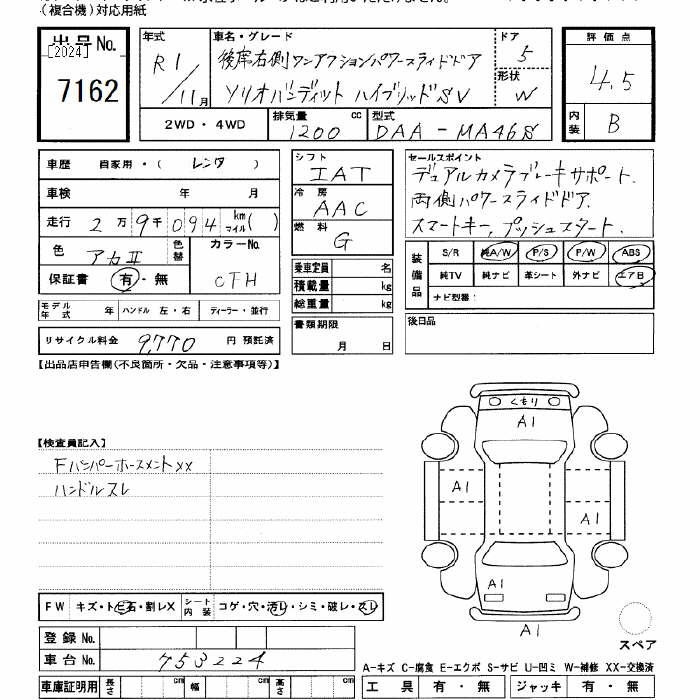 （複合機）対応用紙
出品No.
[2024]
7162
年式
R1/11月
車名・グレード
後席右側ワンアクションパワースライドドア
ソリオバンディット ハイブリッドSV
ドア
5
形状
W
評価点
4.5
内装
B
2WD・4WD
排気量
1200
cc
型式
DAA-MA46S
車歴
自家用・( レンタ )
車検
年 月
走行
2万9千094
km
マイル( )
色
アカII
色替
カラーNo.
CFH
保証書
有・無
モデル年式
年
ハンドル 左・右
ディーラー・並行
リサイクル料金
9,770
円 預託済
シフト
IAT
冷房
AAC
燃料
G
乗車定員 名
積載量 kg
総重量 kg
書類期限
月 日
セールスポイント
デュアルカメラブレーキサポート.
両側パワースライドドア.
スマートキー, プッシュスタート.
装備品
S/R 純A/W P/S P/W ABS
純TV 純ナビ 革シート 外ナビ エアB
ナビ型番：
後日品
【出品店申告欄(不良箇所・欠品・注意事項等)】
【検査員記入】
Fバンパーホースメントxx
ハンドルスレ
FW
キズ・トビ石・割レX
シート内装
コゲ・穴・汚レ・シミ・破レ・スレ
登録No.
車台No.
753224
車庫証明用
長さ cm
幅 cm
高さ cm
くもり
A1
A1
A1
A1
A1
スペア
A-キズ C-腐食 E-エクボ S-サビ U-凹ミ W-補修 XX-交換済
工具 有・無
ジャッキ 有・無